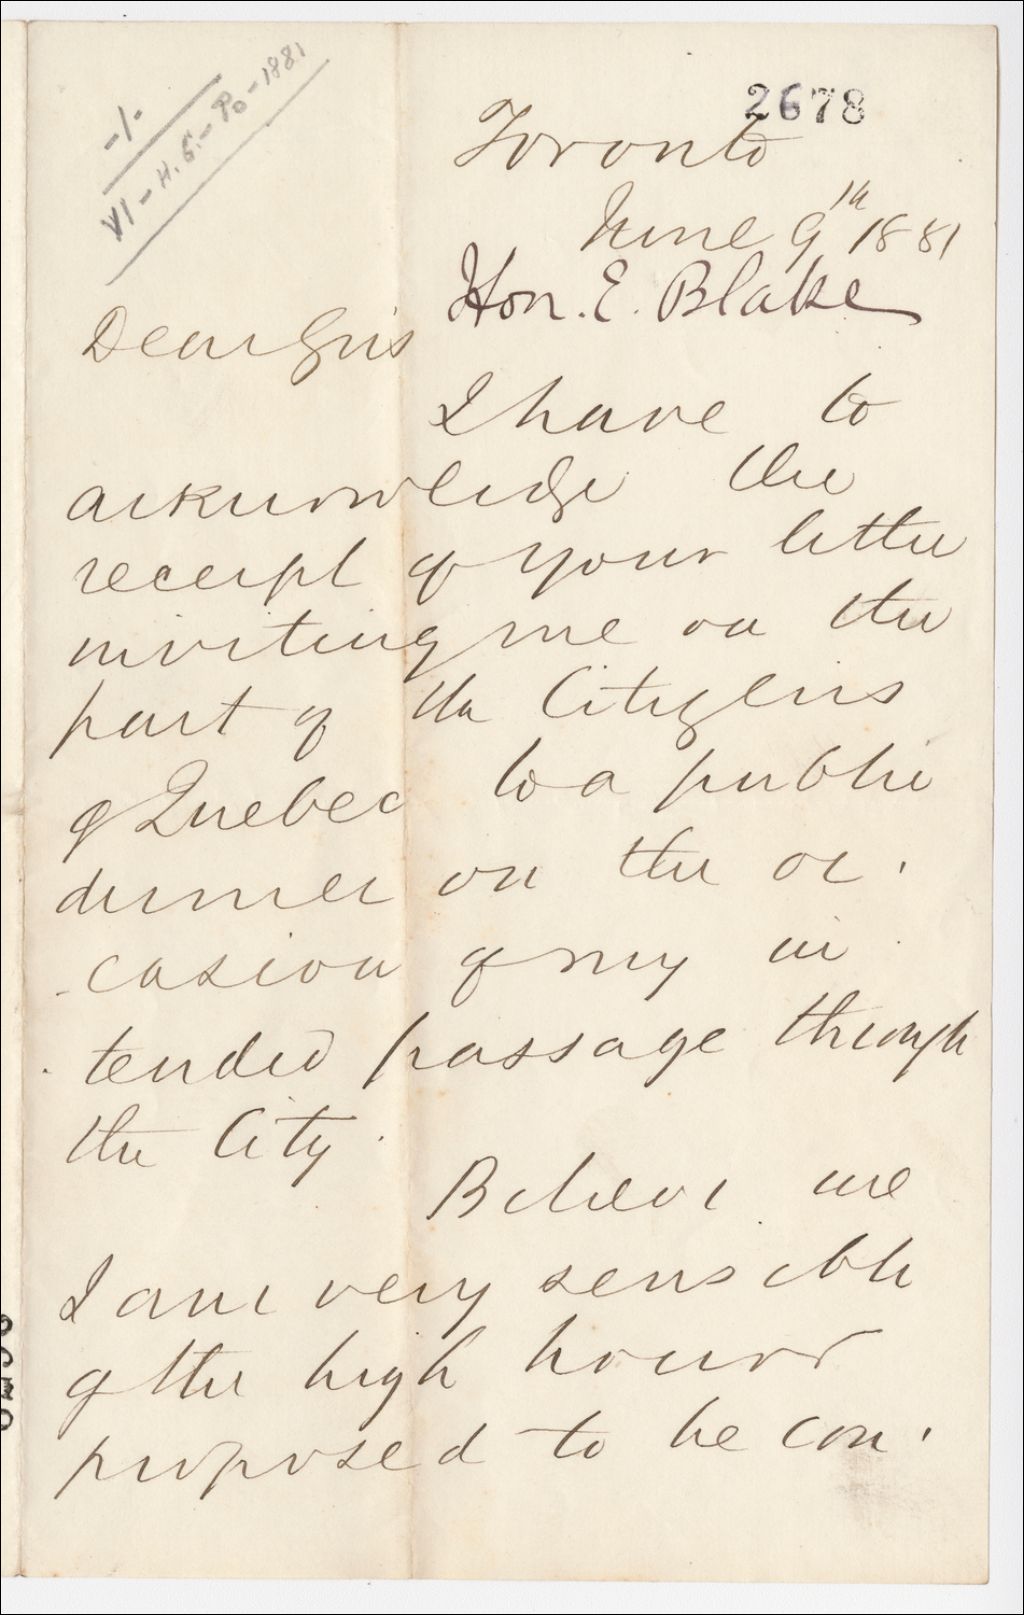 -1-
VI-H.G.-Po-1881
2678
Toronto
June 9th 1881
Hon. E. Blake
Dear Sirs
I have to
acknowledge the
receipt of your letter
inviting me on the
part of the Citizens
of Quebec to a public
dinner on the oc-
casion of my in
tended passage through
the City.
Believe me
I am very sensible
of the high honour
proposed to be con-